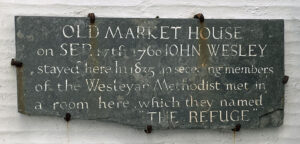 OLD MARKET HOUSE
on SEP. 17th 1760 JOHN WESLEY
stayed here. In 1835, 10 seceding members
of the Wesleyan Methodist met in
a room here, which they named
"THE REFUGE"